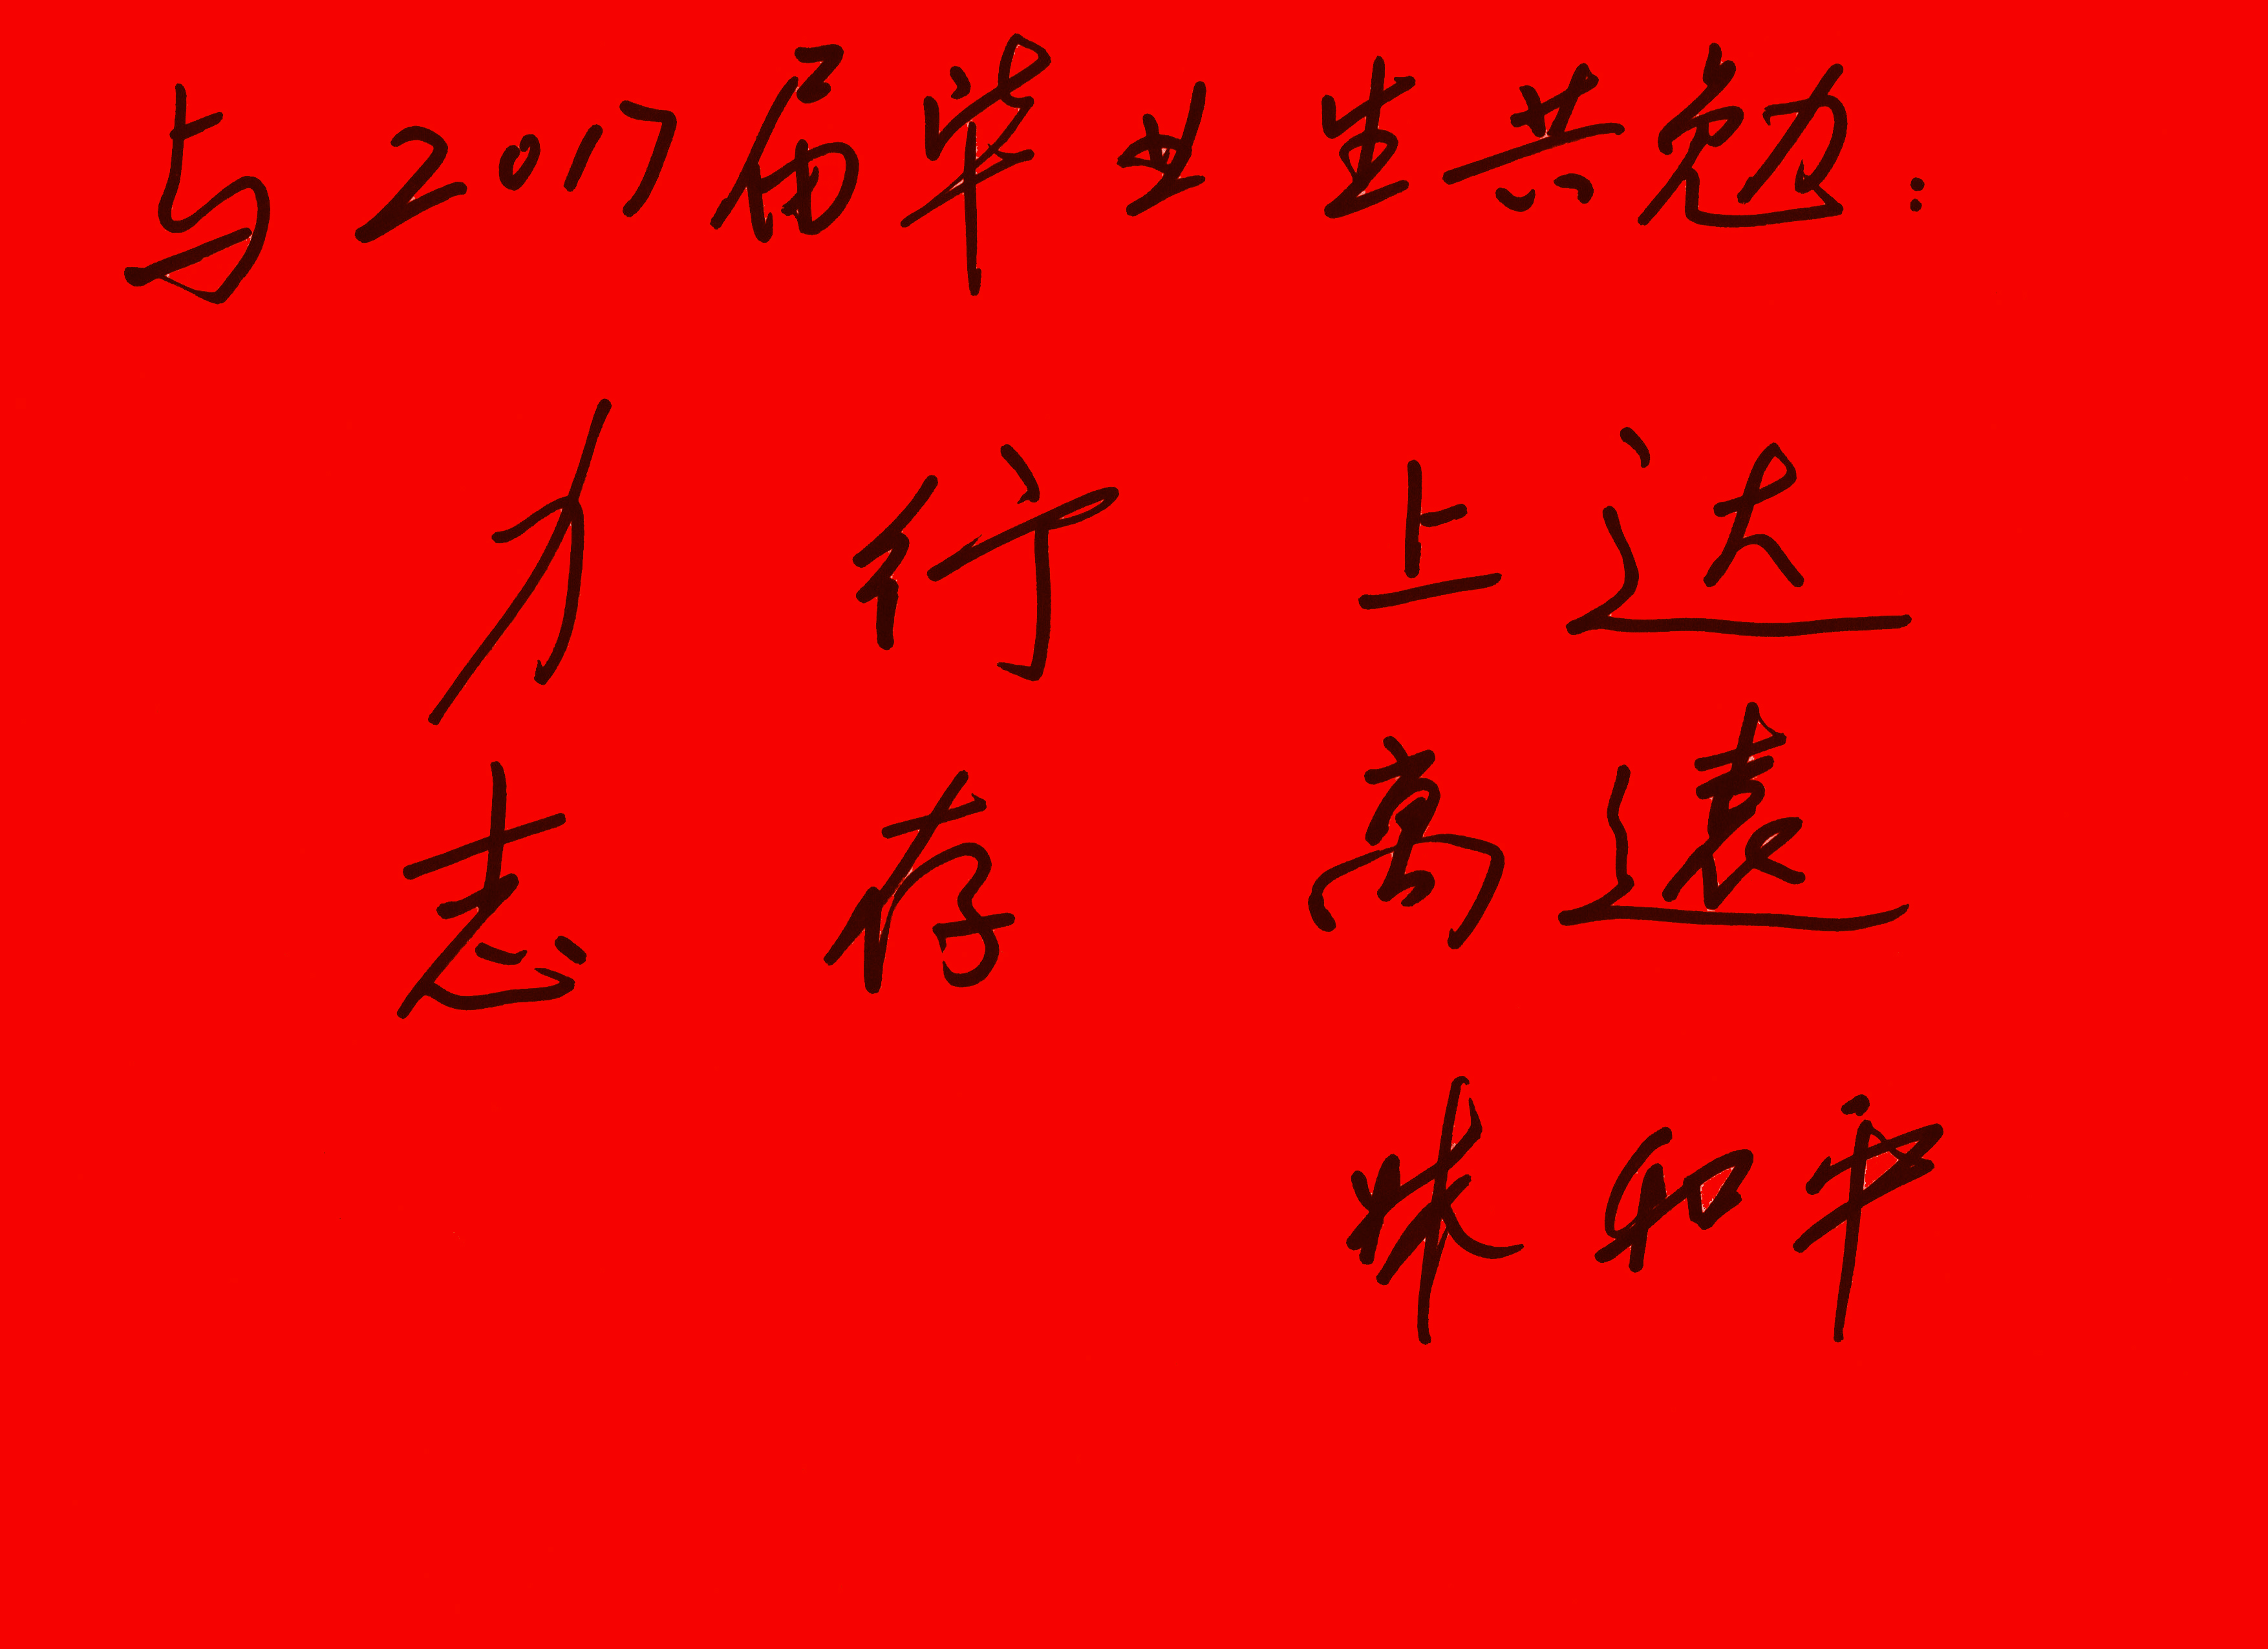 与2017届毕业生共勉:
力行上达
志存高遠
林和平